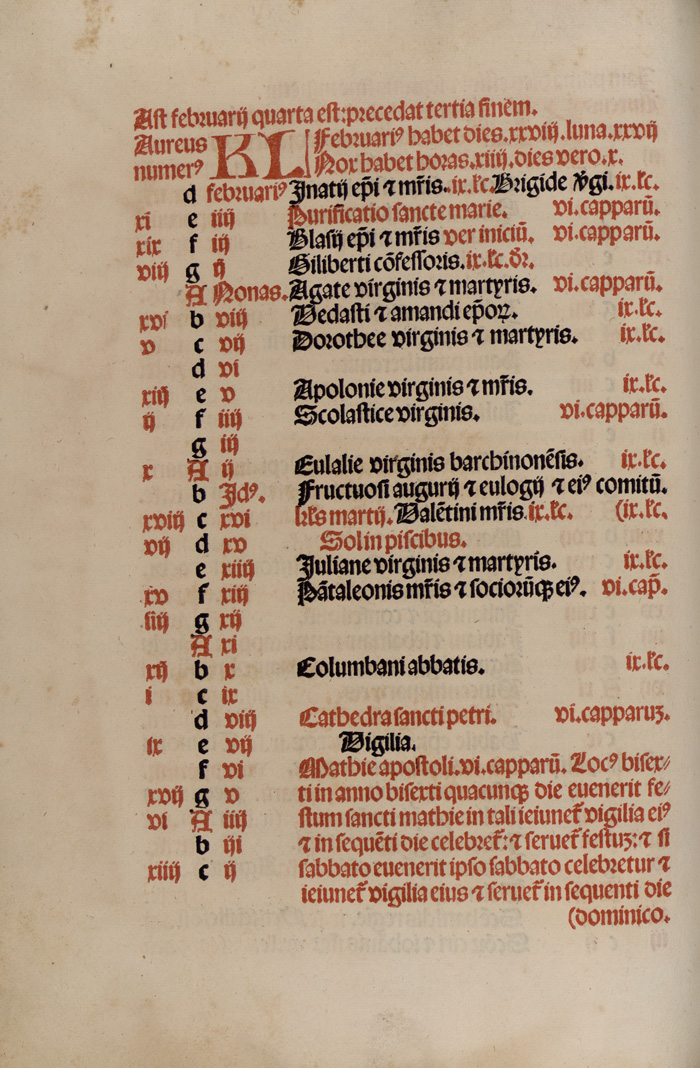 Ast februarij quarta est: precedat tertia finem.
Aureus KL Februariꝰ habet dies. xxviij. luna. xxvij
numerꝰ Nox habet horas. xiiij. dies vero. x.
d februariꝰ Jnatij ep̄i ⁊ mr̄is. ix. lc̄. Brigide v̓gi. ix. lc̄.
xi e iiij Purificatio sancte marie. vi. capparū.
xix f iij Blasij ep̄i ⁊ mr̄is ver iniciū. vi. capparū.
viij g ij Giliberti cōfessoris. ix. lc̄. or̄.
A Nonas. Agate virginis ⁊ martyris. vi. capparū.
xvi b viij Vedasti ⁊ amandi ep̄oꝝ. ix. lc̄.
v c vij Dorothee virginis ⁊ martyris. ix. lc̄.
d vi
xiij e v Apolonie virginis ⁊ mr̄is. ix. lc̄.
ij f iiij Scolastice virginis. vi. capparū.
g iij
x A ij Eulalie virginis barchinonēsis. ix. lc̄.
b Jdꝰ. Fructuosi augurij ⁊ eulogij ⁊ eiꝰ comitū.
xviij c xvi kl̄s martij. Valētini mr̄is. ix. lc̄. (ix. lc̄.
vij d xv Sol in piscibus.
e xiiij Juliane virginis ⁊ martyris. ix. lc̄.
xv f xiij Pātaleonis mr̄is ⁊ sociorūqꝫ eiꝰ. vi. cap̄.
iiij g xij
A xi
xij b x Columbani abbatis. ix. lc̄.
i c ix
d viij Cathedra sancti petri. vi. capparuꝫ.
ix e vij Vigilia.
f vi Mathie apostoli. vi. capparū. Locꝰ bisex⸗
xvij g v ti in anno bisexti quacunqꝫ die euenerit fe⸗
vi A iiij stum sancti mathie in tali ieiunet̄ vigilia eiꝰ
b iij ⁊ in sequēti die celebret̄: ⁊ seruet̄ festuꝫ: ⁊ si
xiiij c ij sabbato euenerit ipso sabbato celebretur ⁊
ieiunet̄ vigilia eius ⁊ seruet̄ in sequenti die
(dominico.